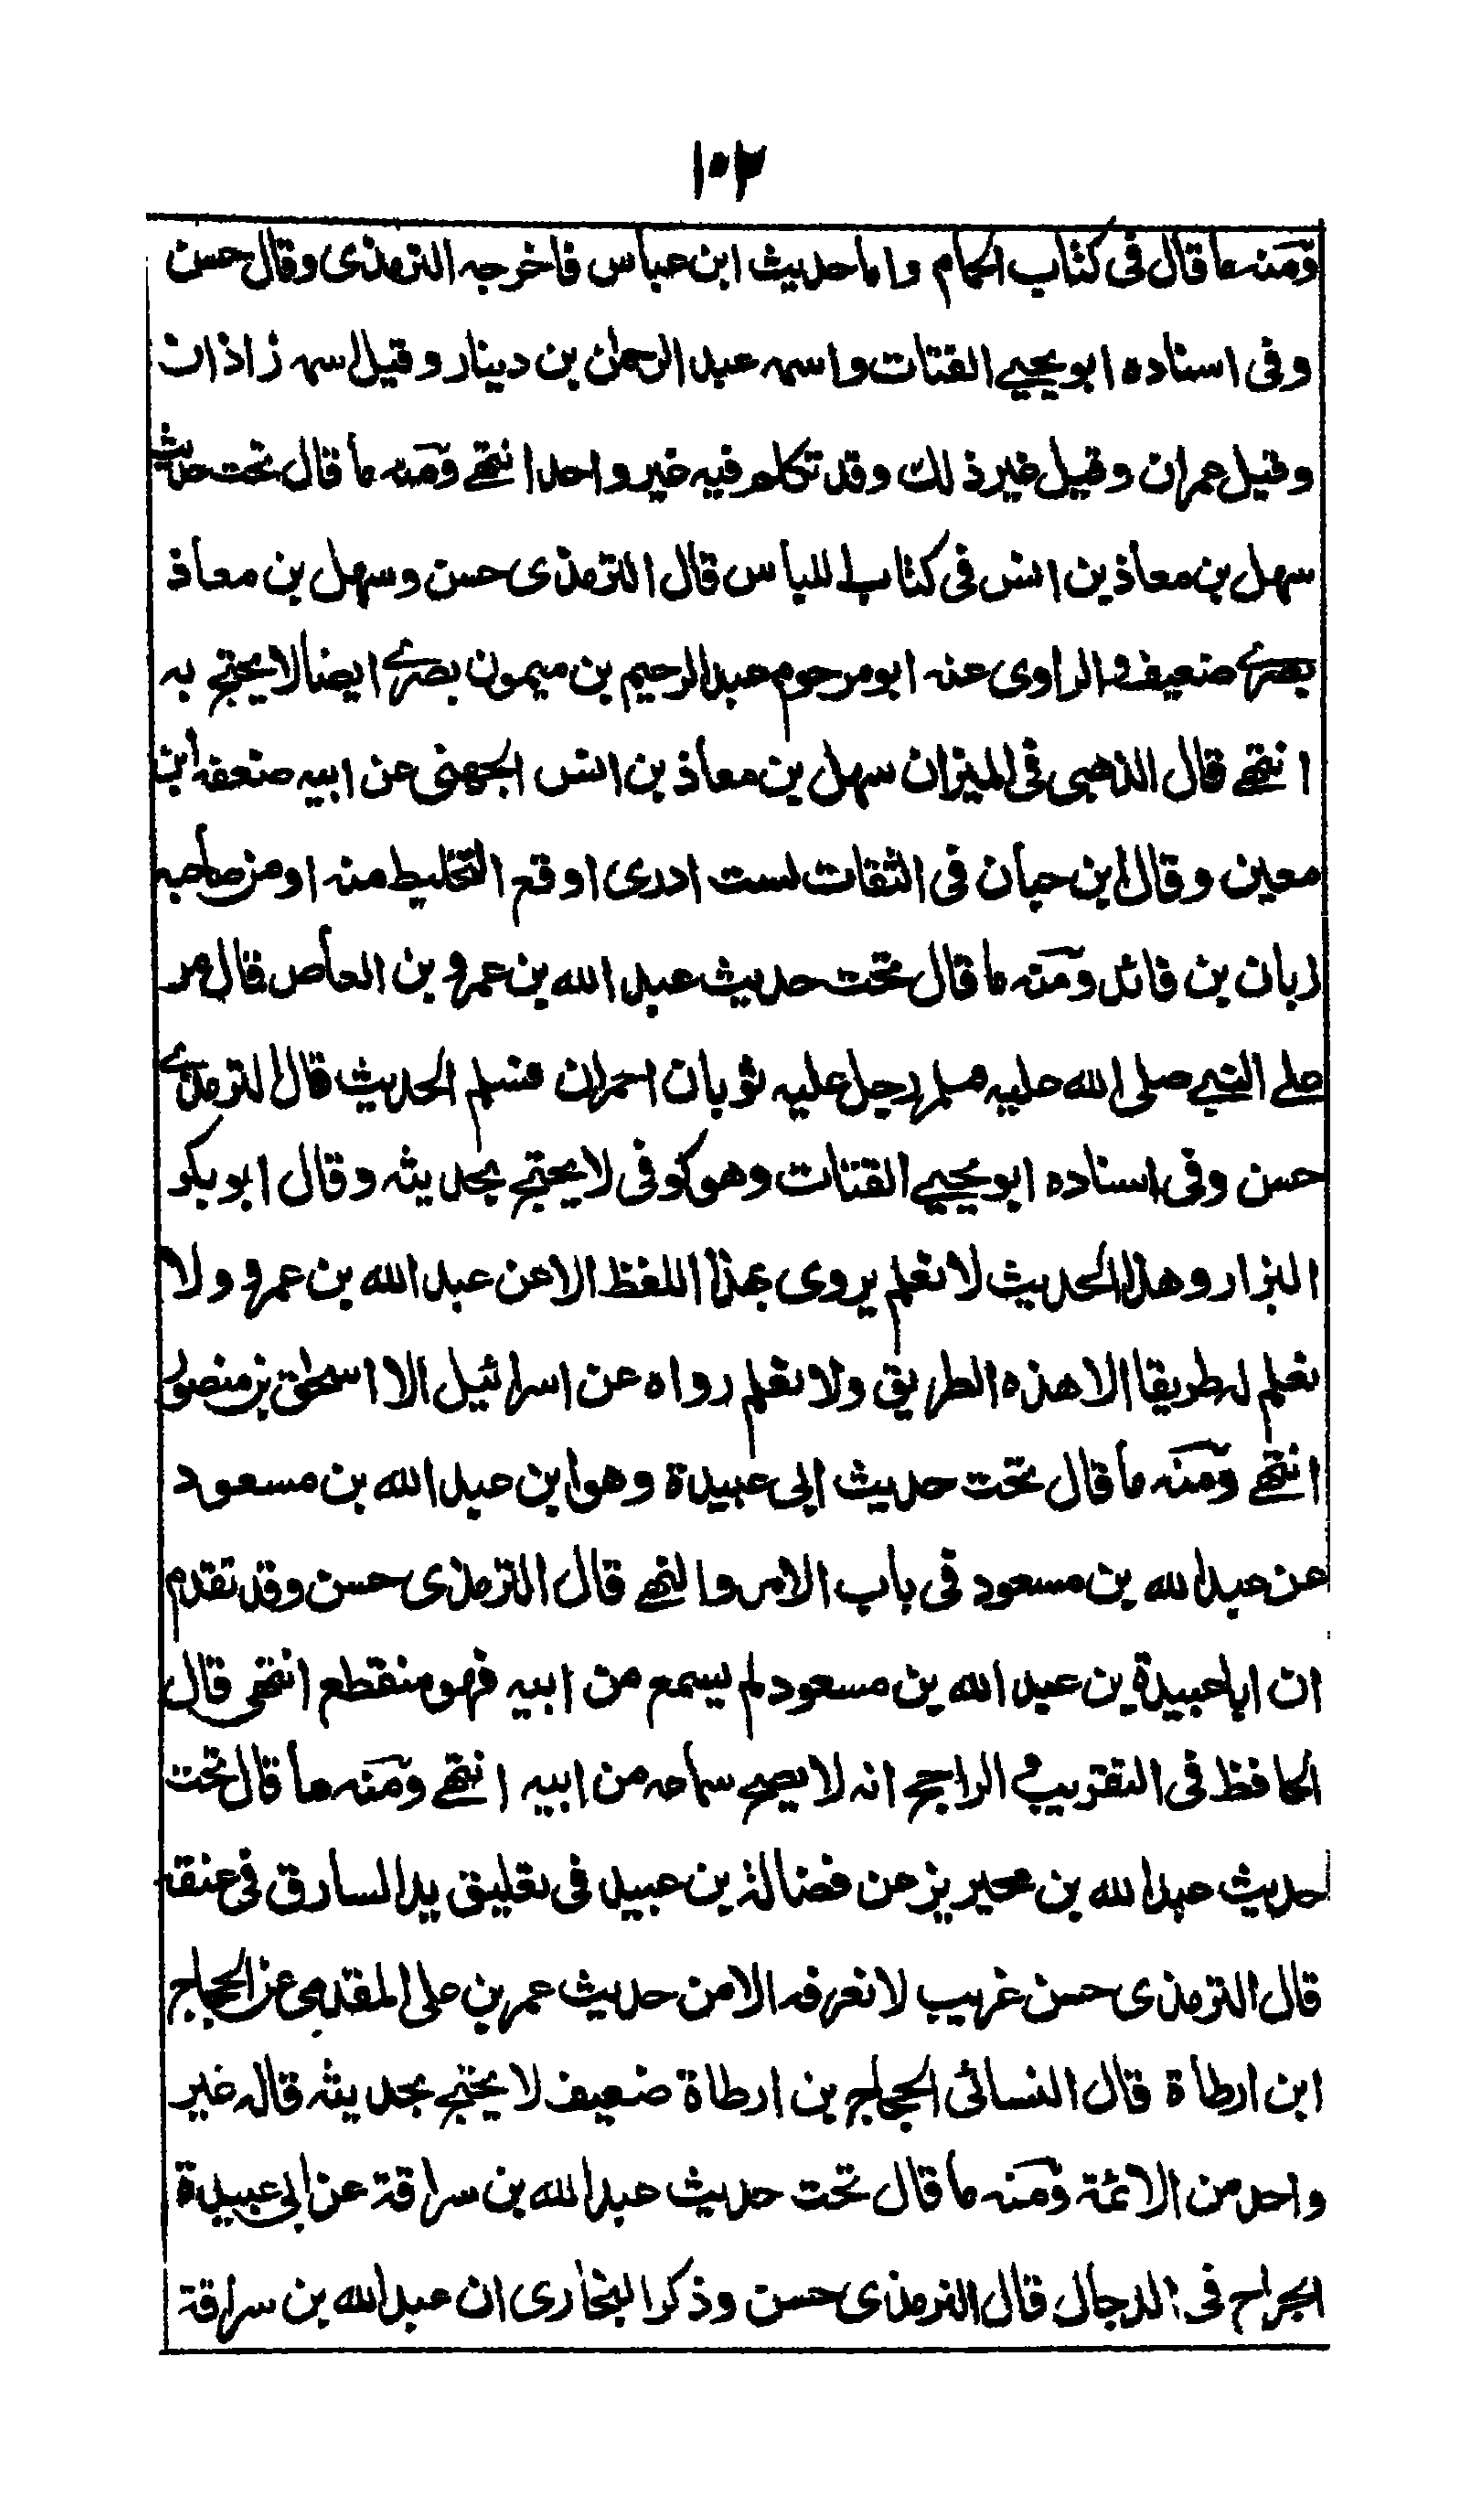 ١٠٢
ومنه ما قال فى كتاب الحمام واما حديث ابن عباس فاخرجه الترمذى وقال حسن
وفى اسناده ابو يحيے القتات واسمه عبد الرحمن بن دينار وقيل اسمه زاذان
وقيل عمران وقيل غير ذلك وقد تكلم فيه غير واحد انتهے ومنه ما قال تحت حديث
سهل بن معاذ بن انس فى كتاب اللباس قال الترمذى حسن وسهل بن معاذ
بصرے ضعيف والراوى عنه ابو مرحوم عبد الرحيم بن ميمون بصرے ايضا لا يحتج به
انتهے قال الذهبى فى الميزان سهل بن معاذ بن انس الجهنى عن ابيه ضعفه ابن
معين وقال ابن حبان فى الثقات لست ادرى اوقع التخليط منه او من صاحبه
زبان بن فائد ومنه ما قال تحت حديث عبد الله بن عمرو بن العاص قال مر
على النبے صلى الله عليه وسلم رجل عليه ثوبان احمران فسلم الحديث قال الترمذے
حسن وفى اسناده ابو يحيے القتات وهو كوفى لا يحتج بحديثه وقال ابو بكر
البزار وهذا الحديث لا نعلم يروى بهذا اللفظ الا عن عبد الله بن عمرو ولا
نعلم له طريقا الا هذه الطريق ولا نعلم رواه عن اسرائيل الا اسحق بن منصور
انتهے ومنه ما قال تحت حديث ابى عبيدة وهو ابن عبد الله بن مسعود
عن عبد الله بن مسعود فى باب الامر والنهے قال الترمذى حسن وقد تقدم
ان ابا عبيدة بن عبد الله بن مسعود لم يسمع من ابيه فهو منقطع انتهى قال
الحافظ فى التقريب و الراجح انه لا يصح سماعه من ابيه انتهے ومنه ما قال تحت
حديث عبد الله بن محيريز عن فضالة بن عبيد فى تعليق يد السارق فى عنقه
قال الترمذى حسن غريب لا نعرفه الا من حديث عمر بن على المقدمى عن الحجاج
ابن ارطاة قال النسائى الحجاج بن ارطاة ضعيف لا يحتج بحديثه قاله غير
واحد من الائمة ومنه ما قال تحت حديث عبد الله بن سراقة عن ابى عبيدة
الجراح فى الدجال قال الترمذى حسن وذكر البخارى ان عبد الله بن سراقة